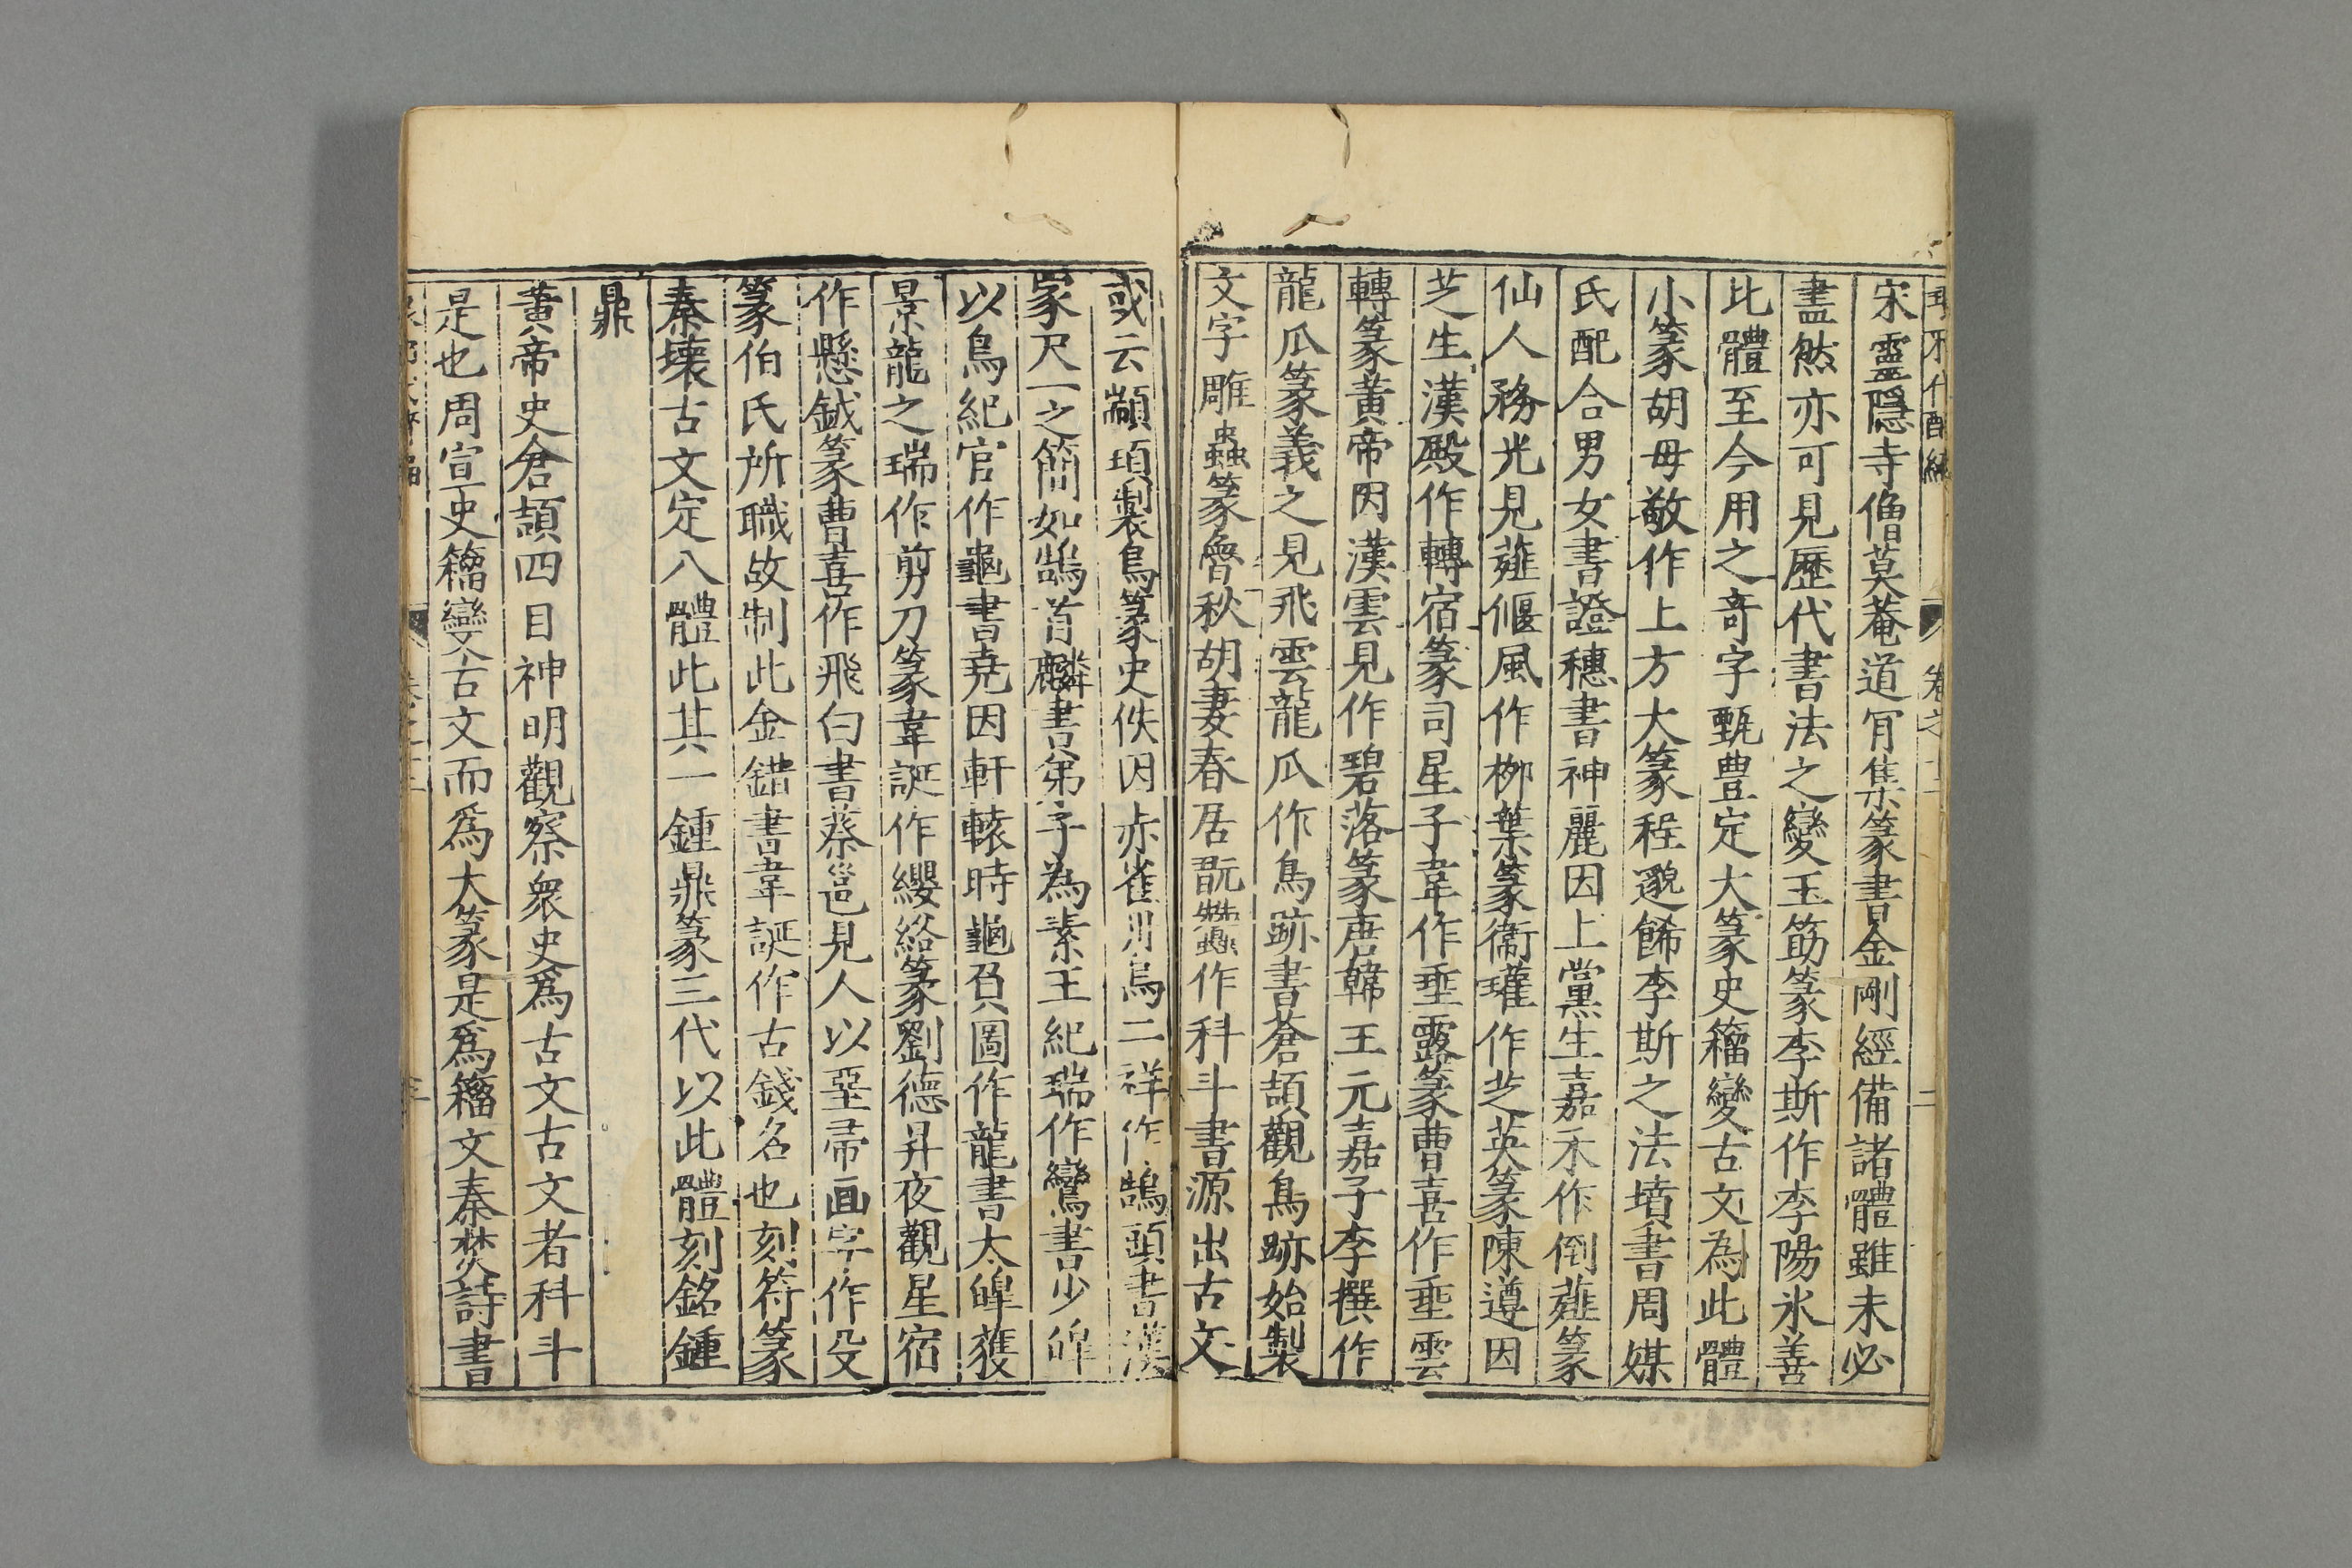 宋靈隱寺僧莫菴道肎集篆書金剛經備諸體雖未必
盡然亦可見歷代書法之變玉筯篆李斯作李陽氷善
此體至今用之竒字甄豊定大篆史籀變古文為此體
小篆胡母敬作上方大篆程邈餙李斯之法墳書周媒
氏配合男女書證穗書神麗因上黨生嘉禾作倒薤篆
仙人務光見薤偃風作栁葉篆衞瓘作芝英篆陳遵因
芝生漢殿作轉宿篆司星子韋作垂露篆曹喜作垂雲
轉篆黃帝因漢雲見作碧落篆唐韓王元嘉子李撰作
龍瓜篆義之見飛雲龍瓜作鳥跡書蒼頡觀鳥跡始製
文字雕蟲篆魯秋胡妻春居翫蠶作科斗書源出古文
或云顓頊製鳥篆史佚因赤雀丹鳥二祥作鵠頭書漢
家尺一之簡如鵠首麟書弟子為素王紀瑞作鸞書少皥
以鳥紀官作龜書堯因軒轅時龜負圖作龍書太皥獲
景龍之瑞作剪刀篆韋誕作纓絡篆劉德昇夜觀星宿
作懸針篆曹喜作飛白書蔡邕見人以堊帚画字作殳
篆伯氏所職故制此金錯書韋誕作古錢名也刻符篆
秦壊古文定八體此其一鍾鼎篆三代以此體刻銘鍾
鼎
黃帝史倉頡四目神明觀察衆史爲古文古文者科斗
是也周宣史籀變古文而爲大篆是爲籀文秦焚詩書